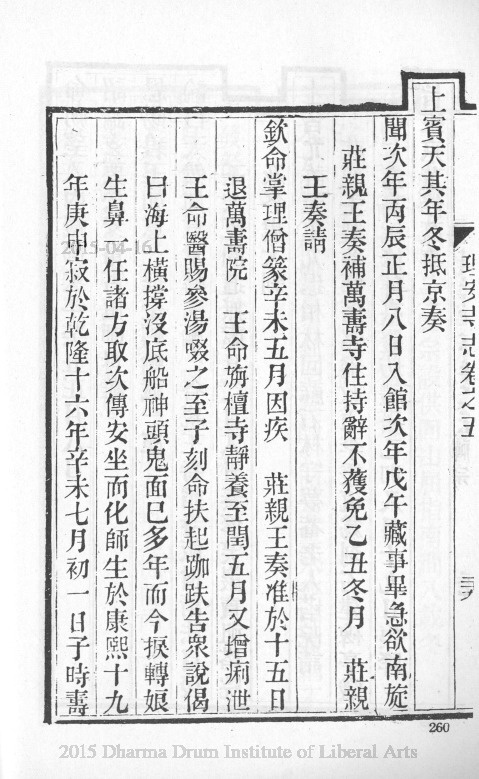 上賓天其年冬抵京奏
聞次年丙辰正月八日入館次年戊午藏事畢急欲南旋
莊親王奏補萬壽寺住持辭不獲免乙丑冬月 莊親
王奏請
欽命掌理僧篆辛未五月因疾 莊親王奏准於十五日
退萬壽院 王命旃檀寺靜養至閏五月又增痢泄
王命醫賜參湯啜之至子刻命扶起跏趺告衆說偈
曰海上橫撐沒底船神頭鬼面已多年而今捩轉娘
生鼻一任諸方取次傳安坐而化師生於康熙十九
年庚申寂於乾隆十六年辛未七月初一日子時壽
理安寺志卷之五
260
2015-04-16
2015 Dharma Drum Institute of Liberal Arts